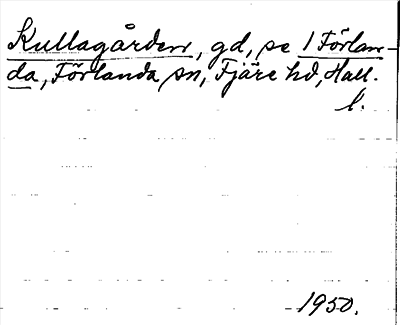 Kullagården, gd, se 1 Förlan-
da, Förlanda sn, Fjäre hd, Hall.
l.
1950.